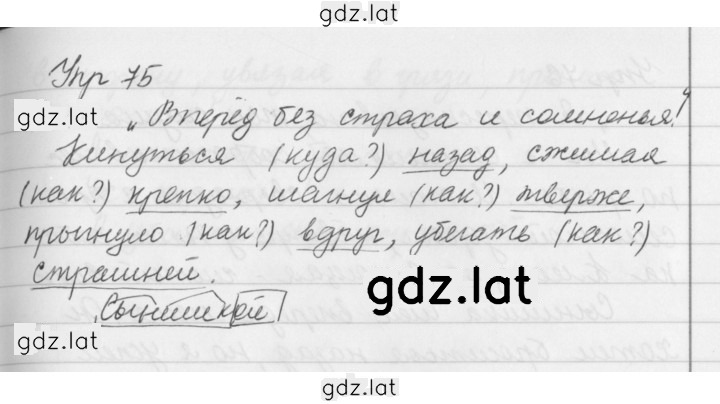 gdz.lat
Упр 75
gdz.lat
„Вперёд без страха и сомненья!“
Кинуться (куда?) назад, сжимая
(как?) крепко, шагнул (как?) тверже,
прыгнуло (как?) вдруг, убегать (как?)
страшней.
gdz.lat
Сынишкой
gdz.lat
gdz.lat